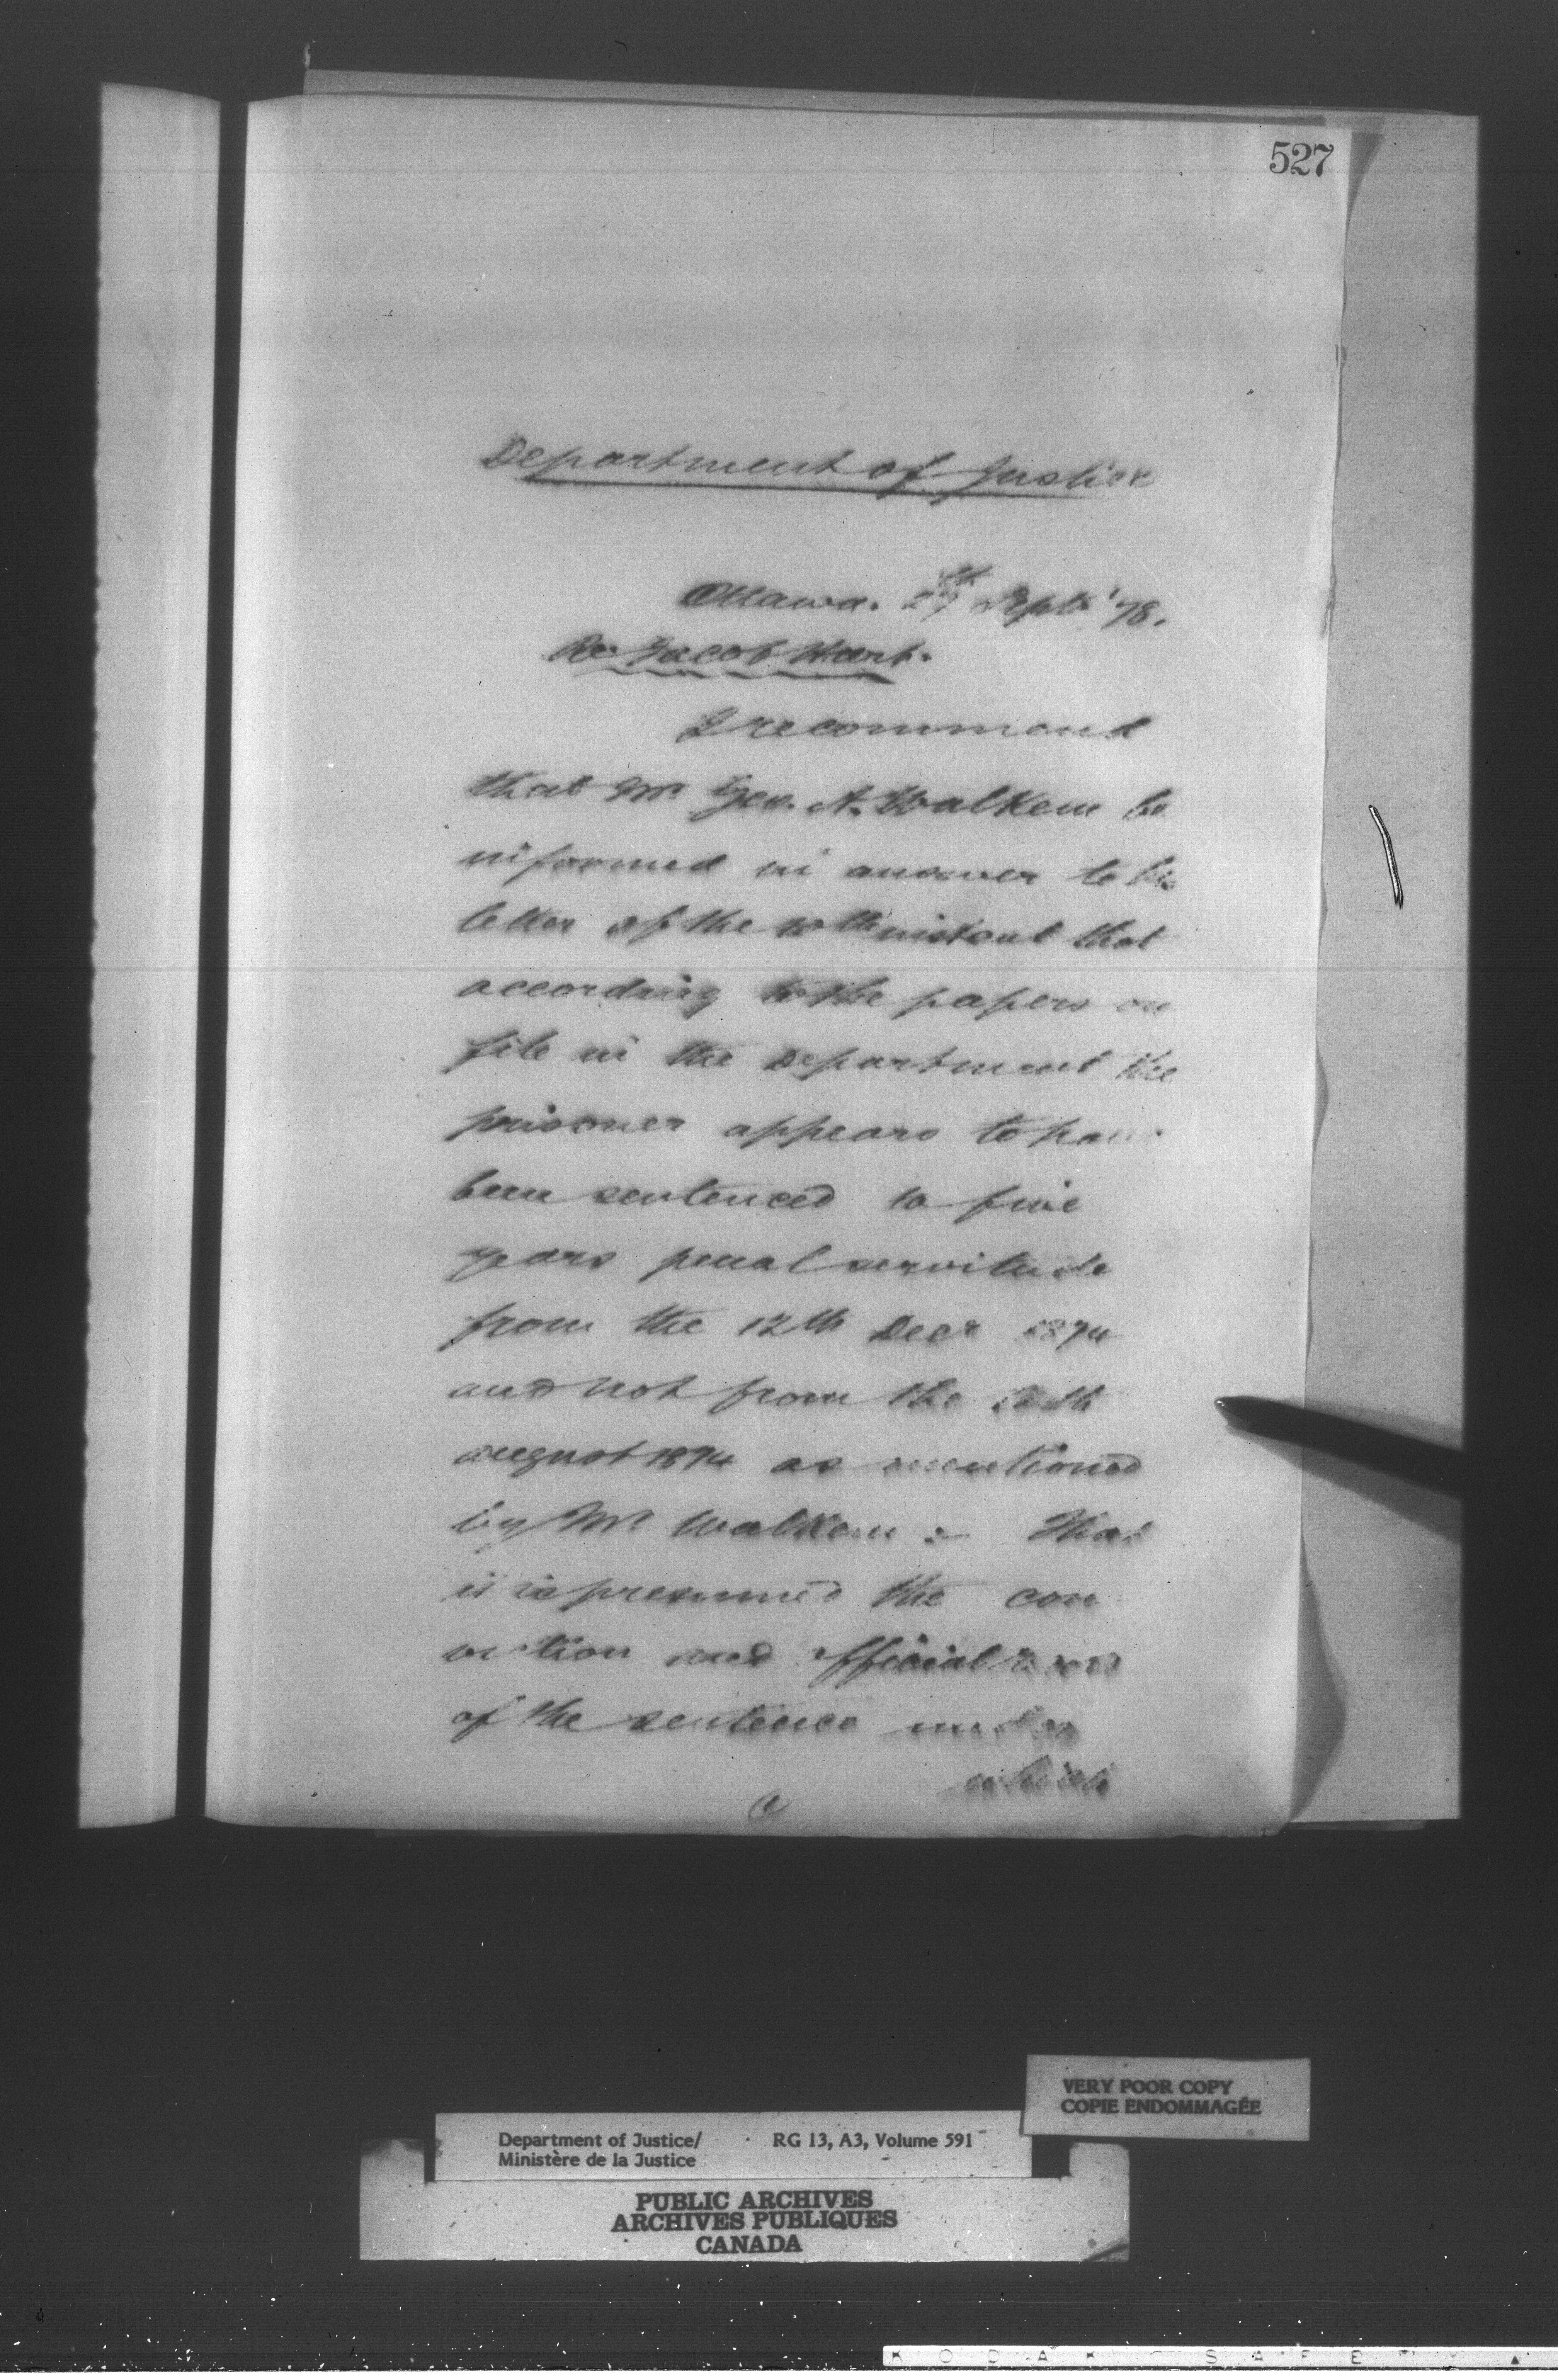 527
Department of Justice
Ottawa. 27th Sept '78.
Re: Jacob Hart.
I recommend
that Mr Geo. A. Walkem be
informed in answer to his
letter of the 10th instant that
according to the papers on
file in the Department the
prisoner appears to have
been sentenced to five
years penal servitude
from the 12th Decr 1874
and not from the
august 1874 as mentioned
by Mr Walkem :- That
it is presumed the con
viction and official
of the sentence under
which
VERY POOR COPY
COPIE ENDOMMAGÉE
Department of Justice/ RG 13, A3, Volume 591
Ministère de la Justice
PUBLIC ARCHIVES
ARCHIVES PUBLIQUES
CANADA
KODAK SAFETY